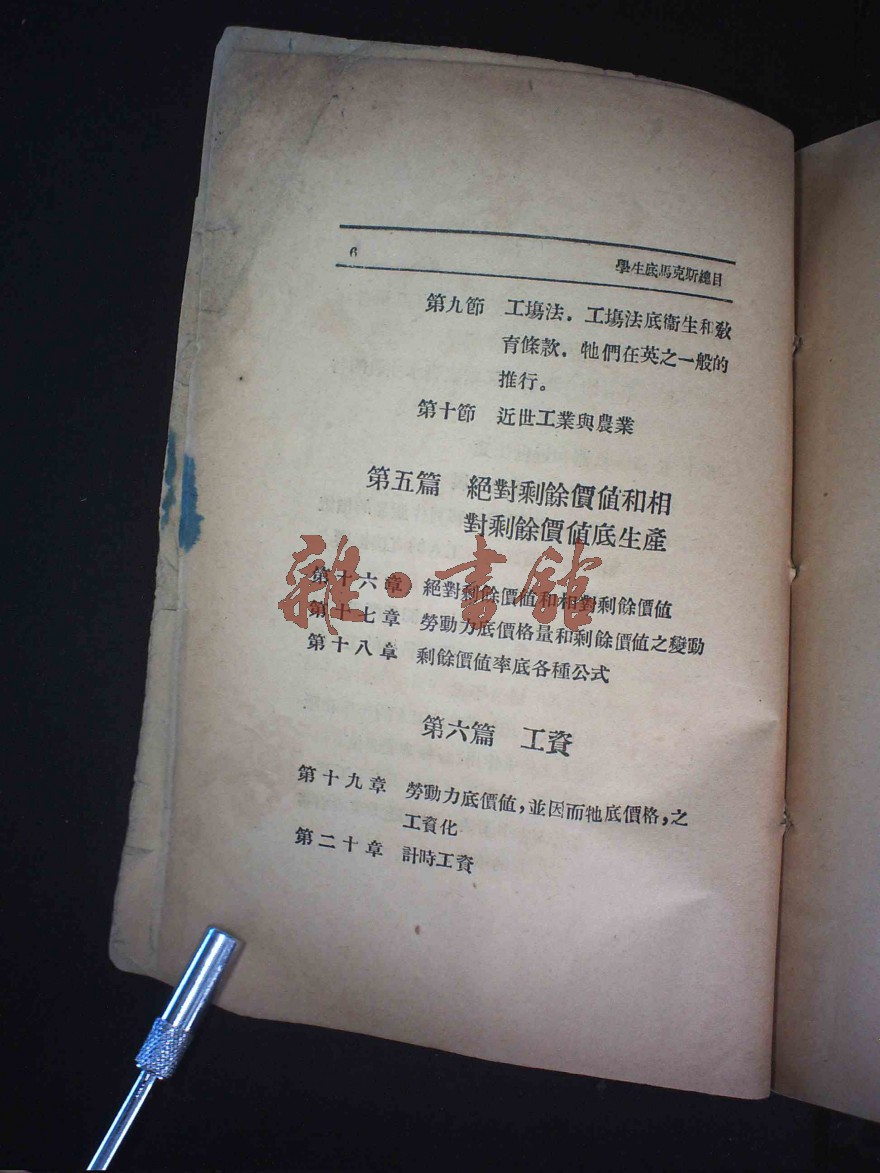 6
學生底馬克斯總目
第九節 工場法．工場法底衞生和教
育條款．牠們在英之一般的
推行。
第十節 近世工業與農業
第五篇 絕對剩餘價值和相
對剩餘價值底生產
第十六章 絕對剩餘價值和相對剩餘價值
第十七章 勞動力底價格量和剩餘價值之變動
第十八章 剩餘價值率底各種公式
第六篇 工資
第十九章 勞動力底價值，並因而牠底價格，之
工資化
第二十章 計時工資
雜·書館